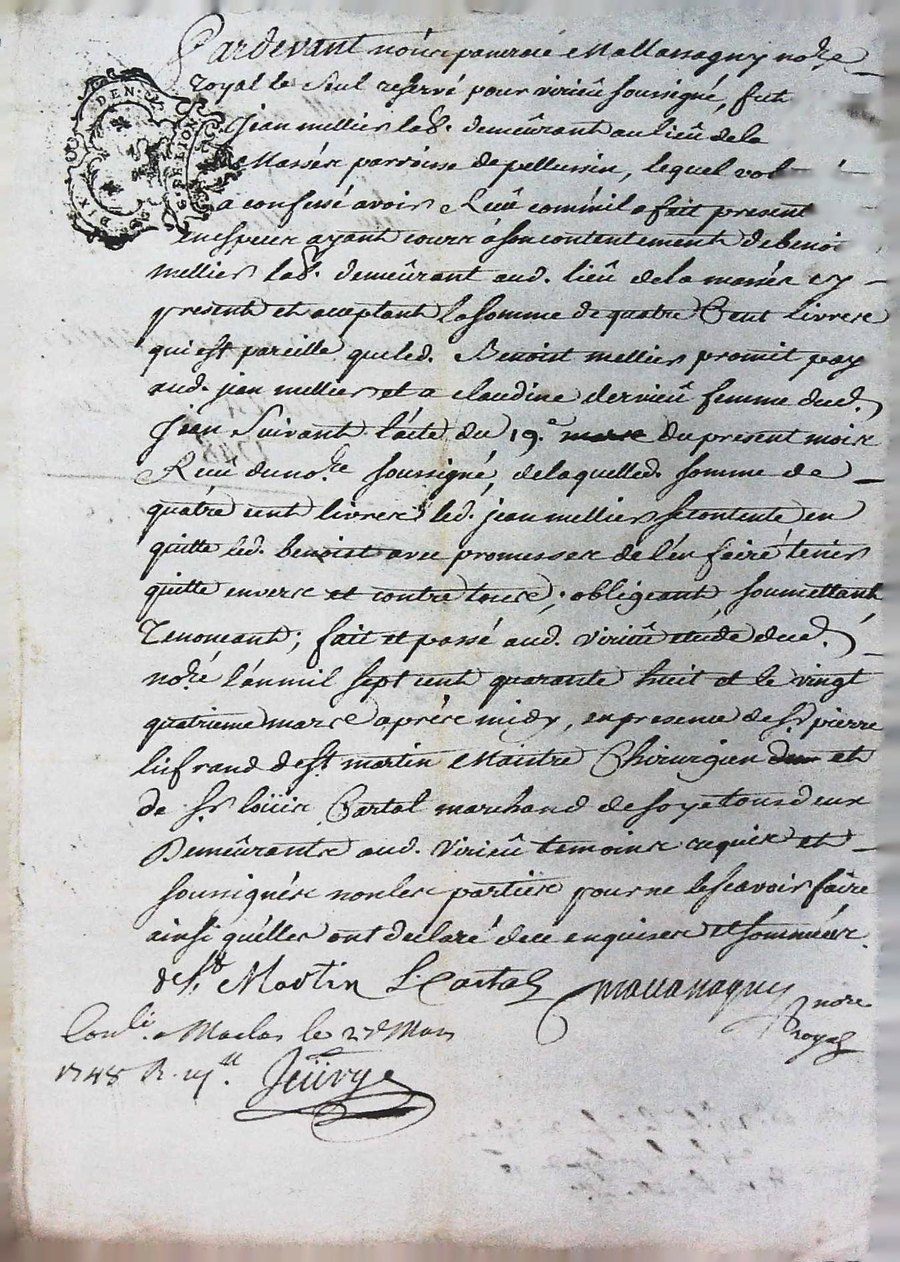 Pardevant nous pancrace Mallassagny no.re
royal le seul reservé pour virieu soussigné, fut
Jean mellier lab.r demeurant au lieu de la
Massée parroisse de pellussin, lequel vol
a confessé avoir Reçu comm'il a fait present
en espèces ayant cours à son contentement de benoi
mellier lab.r demeurant aud. lieu de la massée cy
present et aceptant la somme de quatre Cent livres
qui est pareille que led. Benoist mellier promit pay
aud. jean mellier et a claudine dervieu femme dud.
Jean Suivant l'acte du 19.e du present mois
Recu du no.re soussigné, de laquelled. somme de
quatre cent livres led. jean mellier se contente en
quitte led. benoist avec promesses de l'en faire tenir
quitte envers et contre tous; obligeant, soumettant
Renonceant; fait et passé aud. virieu etude dud.
no.re l'an mil sept cent quarante huit et le vingt
quatrieme mars après midy, en presence de s.r pierre
de s.t martin Maitre Chirurgien et
de s.r loüis Cartal marchand de soye tous deux
Demeurants aud. Virieu temoins requis et
soussignés non les parties pour ne le scavoir faire
ainsi qu'elles ont declaré de ce enquises et sommées.
de S.t Martin L. Cartal Mallassagny no.re
royal
Conlé. a Maclas le 27 Mars
1748 R.
DIX DEN. G. DE LION